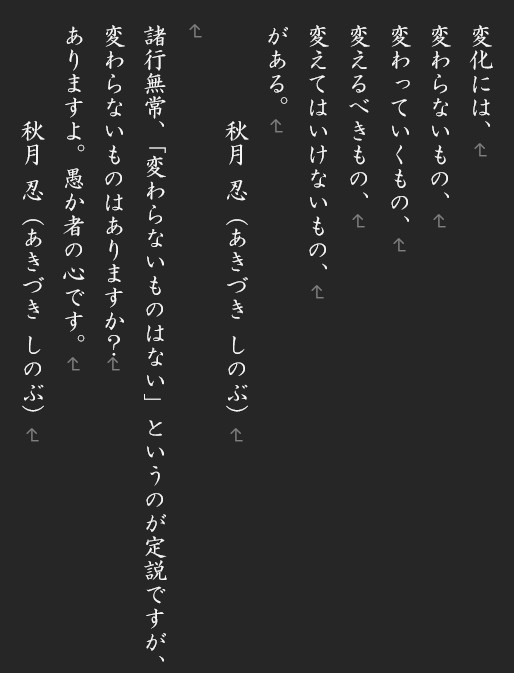 変化には、
変わらないもの、
変わっていくもの、
変えるべきもの、
変えてはいけないもの、
がある。
秋月 忍（あきづき しのぶ）
諸行無常、「変わらないものはない」というのが定説ですが、
変わらないものはありますか?
ありますよ。愚か者の心です。
秋月 忍（あきづき しのぶ）